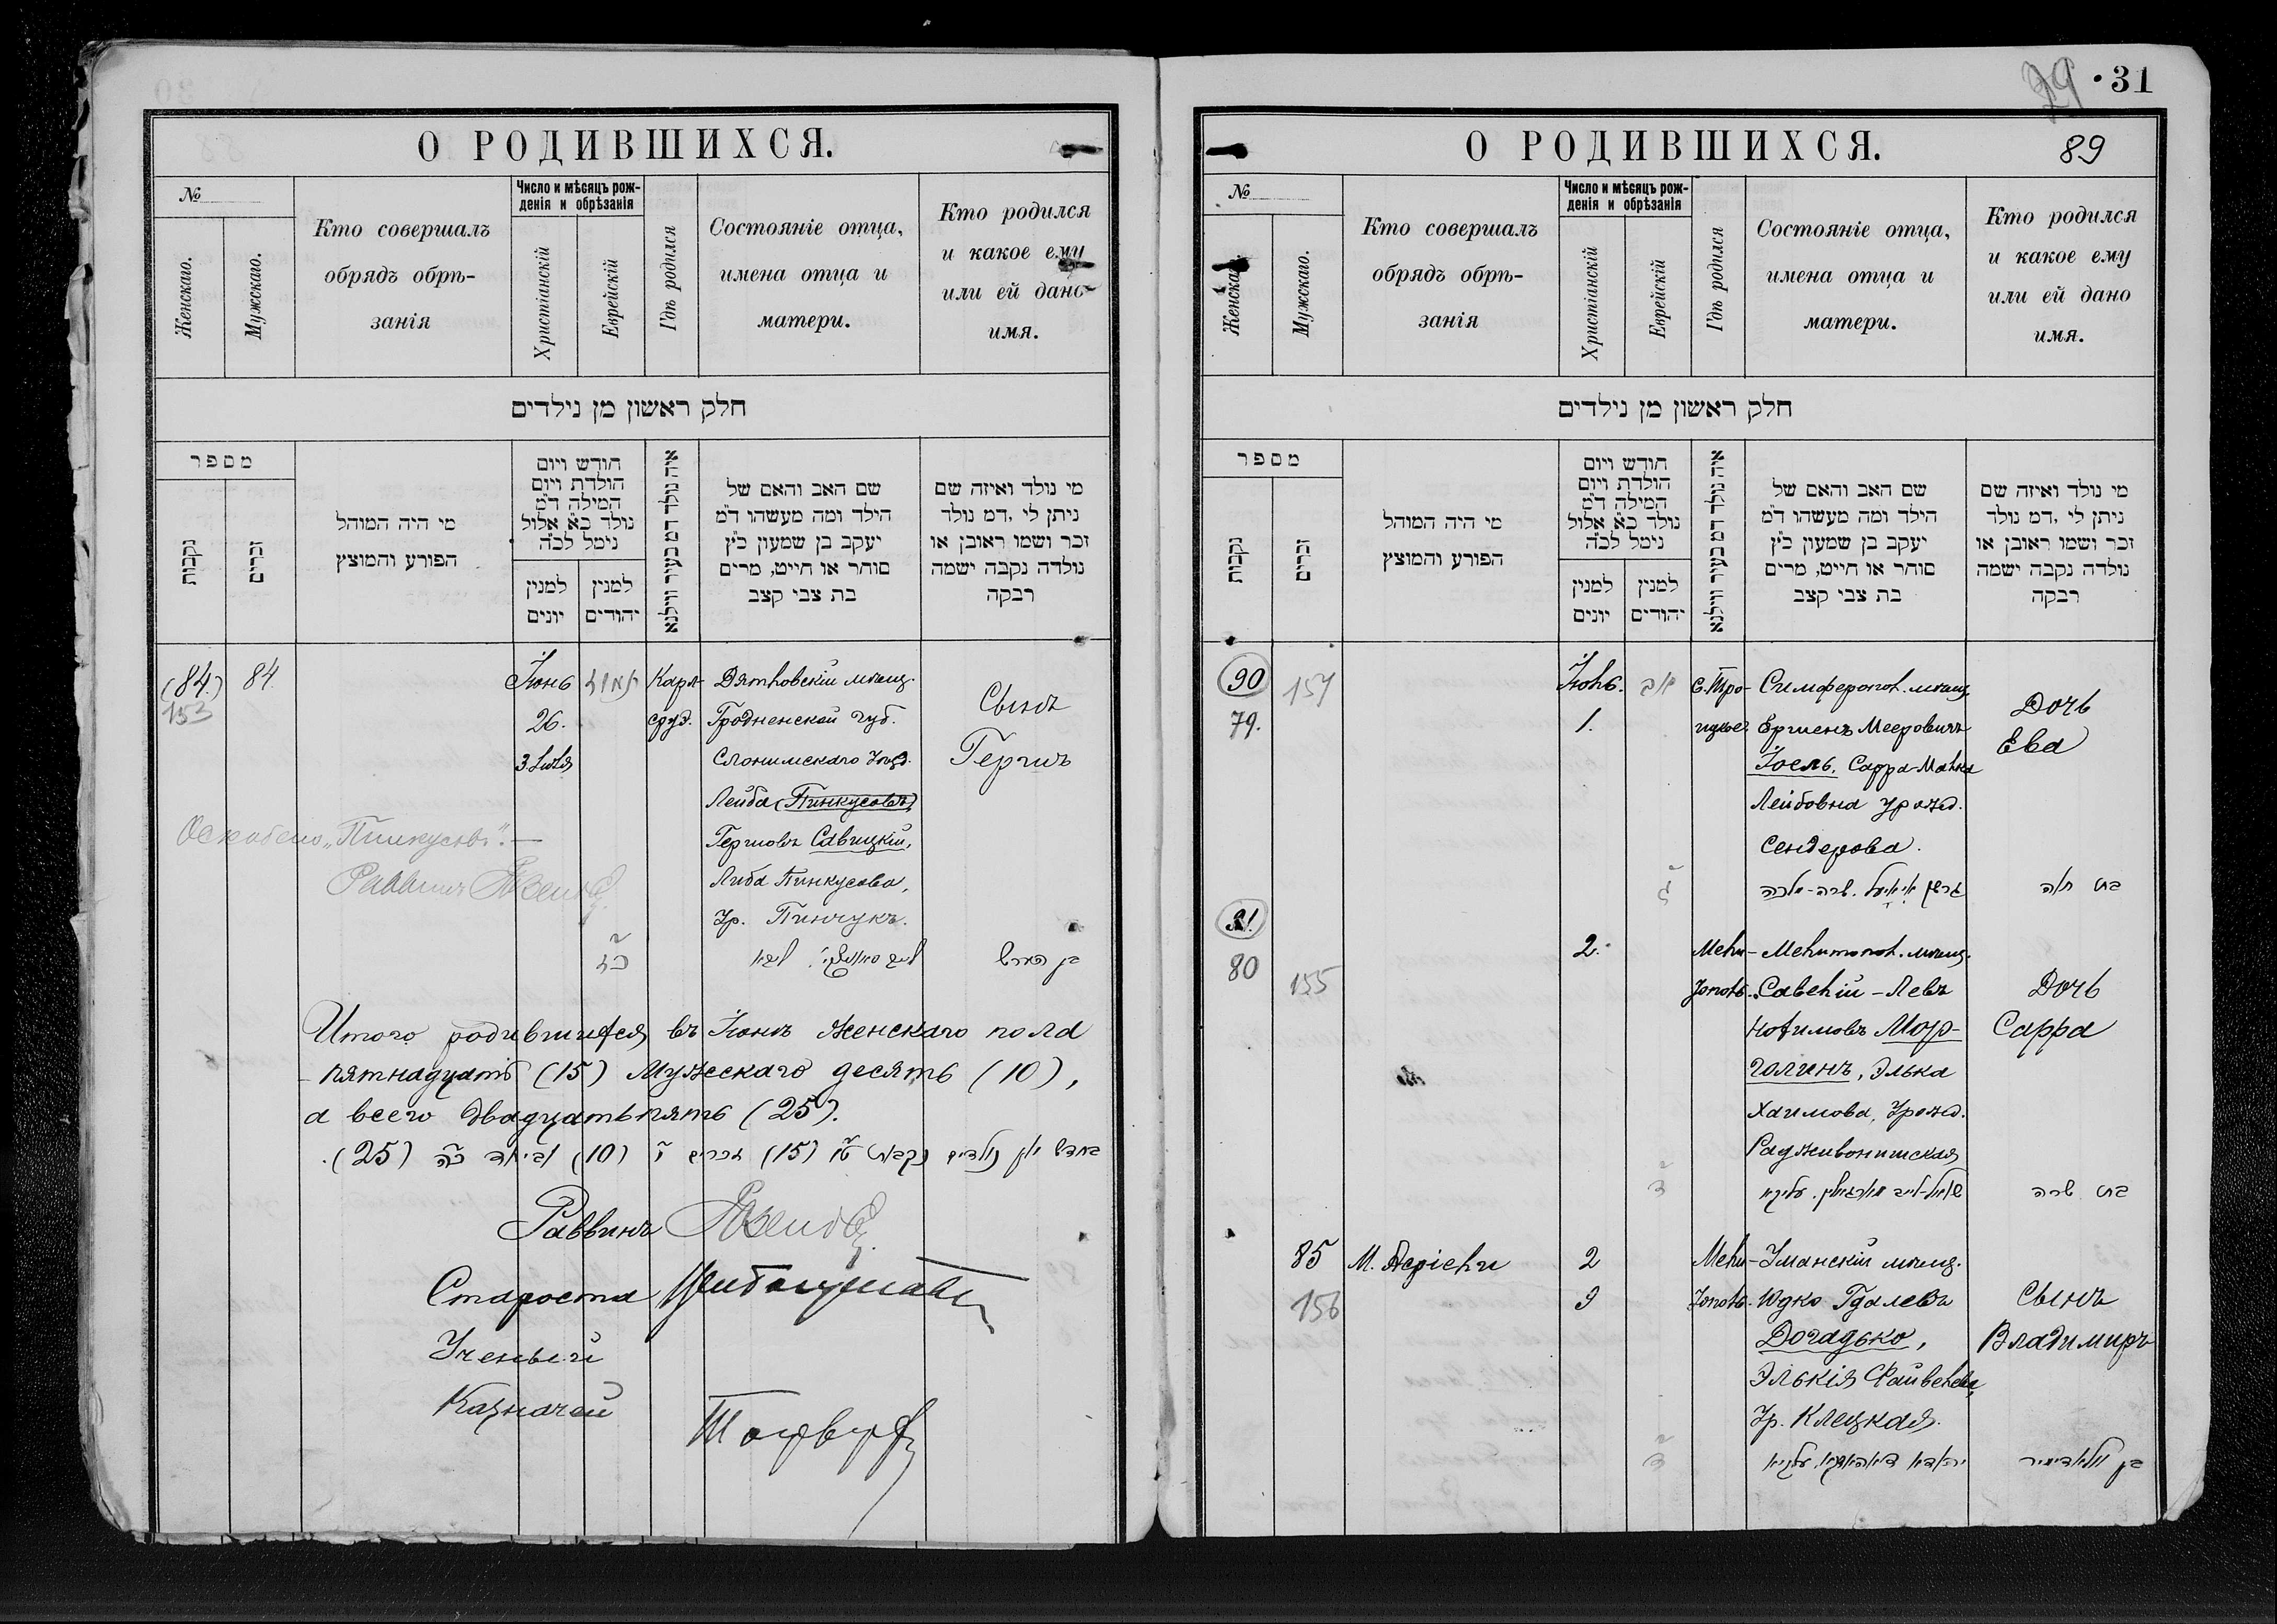 О РОДИВШИХСЯ.
№
Женскаго.
Мужскаго.
Кто совершалъ
обрядъ обрѣ-
занія
Число и мѣсяцъ рож-
денія и обрѣзанія
Христіанскій
Еврейскій
Гдѣ родился
Состояніе отца,
имена отца и
матери.
Кто родился
и какое ему
или ей дано
имя.
חלק ראשון מן נילדים
מספר
נקבות
זכרים
מי היה המוהל
הפורע והמוצץ
חודש ויום
הולדת ויום
המילה ד"מ
נולד כ"א אלול
נימל לכ"ה
למנין
יונים
למנין
יהודים
איה נולד דמ בעיר ווילנא
שם האב והאם של
הילד ומה מעשהו ד"מ
יעקב בן שמעון כ"ץ
סוחר או חייט, מרים
בת צבי קצב
מי נולד ואיזה שם
ניתן לי ,דמ נולד
זכר ושמו ראובן או
נולדה נקבה ישמה
רבקה
(84.)
153
84
Іюнь
26.
3 Іюля
תמוז
כד
Кара-
сруд.
Дятловскій мѣщ.
Гродненской губ.
Слонимскаго Уѣзд.
Лейба (Пинкусовъ)
Гершовъ Савицкій,
Либа Пинкусова,
Ур. Пинчукъ.
Сынъ
Гершъ
בן הערש
„Пинкусовъ". —
Раввинъ
Итого родившихся въ Іюнѣ женскаго пола
- пятнадцать (15) Мужескаго десять (10),
а всего двадцать пять (25).
בחדש יון נולדים נקבות ט"ו (15) זכרים י' (10) וביחד כ"ה (25).
Раввинъ
Староста
Ученый
Казначей
29 • 31
О РОДИВШИХСЯ.
89
№
Женскаго.
Мужскаго.
Кто совершалъ
обрядъ обрѣ-
занія
Число и мѣсяцъ рож-
денія и обрѣзанія
Христіанскій
Еврейскій
Гдѣ родился
Состояніе отца,
имена отца и
матери.
Кто родился
и какое ему
или ей дано
имя.
חלק ראשון מן נילדים
מספר
נקבות
זכרים
מי היה המוהל
הפורע והמוצץ
חודש ויום
הולדת ויום
המילה ד"מ
נולד כ"א אלול
נימל לכ"ה
למנין
יונים
למנין
יהודים
איה נולד דמ בעיר ווילנא
שם האב והאם של
הילד ומה מעשהו ד"מ
יעקב בן שמעון כ"ץ
סוחר או חייט, מרים
בת צבי קצב
מי נולד ואיזה שם
ניתן לי ,דמ נולד
זכר ושמו ראובן או
נולדה נקבה ישמה
רבקה
90
79.
154
Іюль.
1.
с. Тро-
ицкое.
Симферопол. мѣщ.
Ершенъ Мееровичъ
Іоель, Сарра-Малка
Лейбовна урожд.
Сендерова.
Дочь
Ева
בת חוה
91
80
155
2.
Мели-
тополь.
Мелитопол. мѣщ.
Савелій-Левъ
Мор-
голинъ, Элька
Хаимова, Урожд.
Дочь
Сарра
בת שרה
85
156
2
9
Мели-
тополь.
Уманскій мѣщ.
Юдко Гдалевъ
Догадько,
Элькія Файвелева
Ур. Клецкая.
Сынъ
Владимиръ
בן וולאדימיר